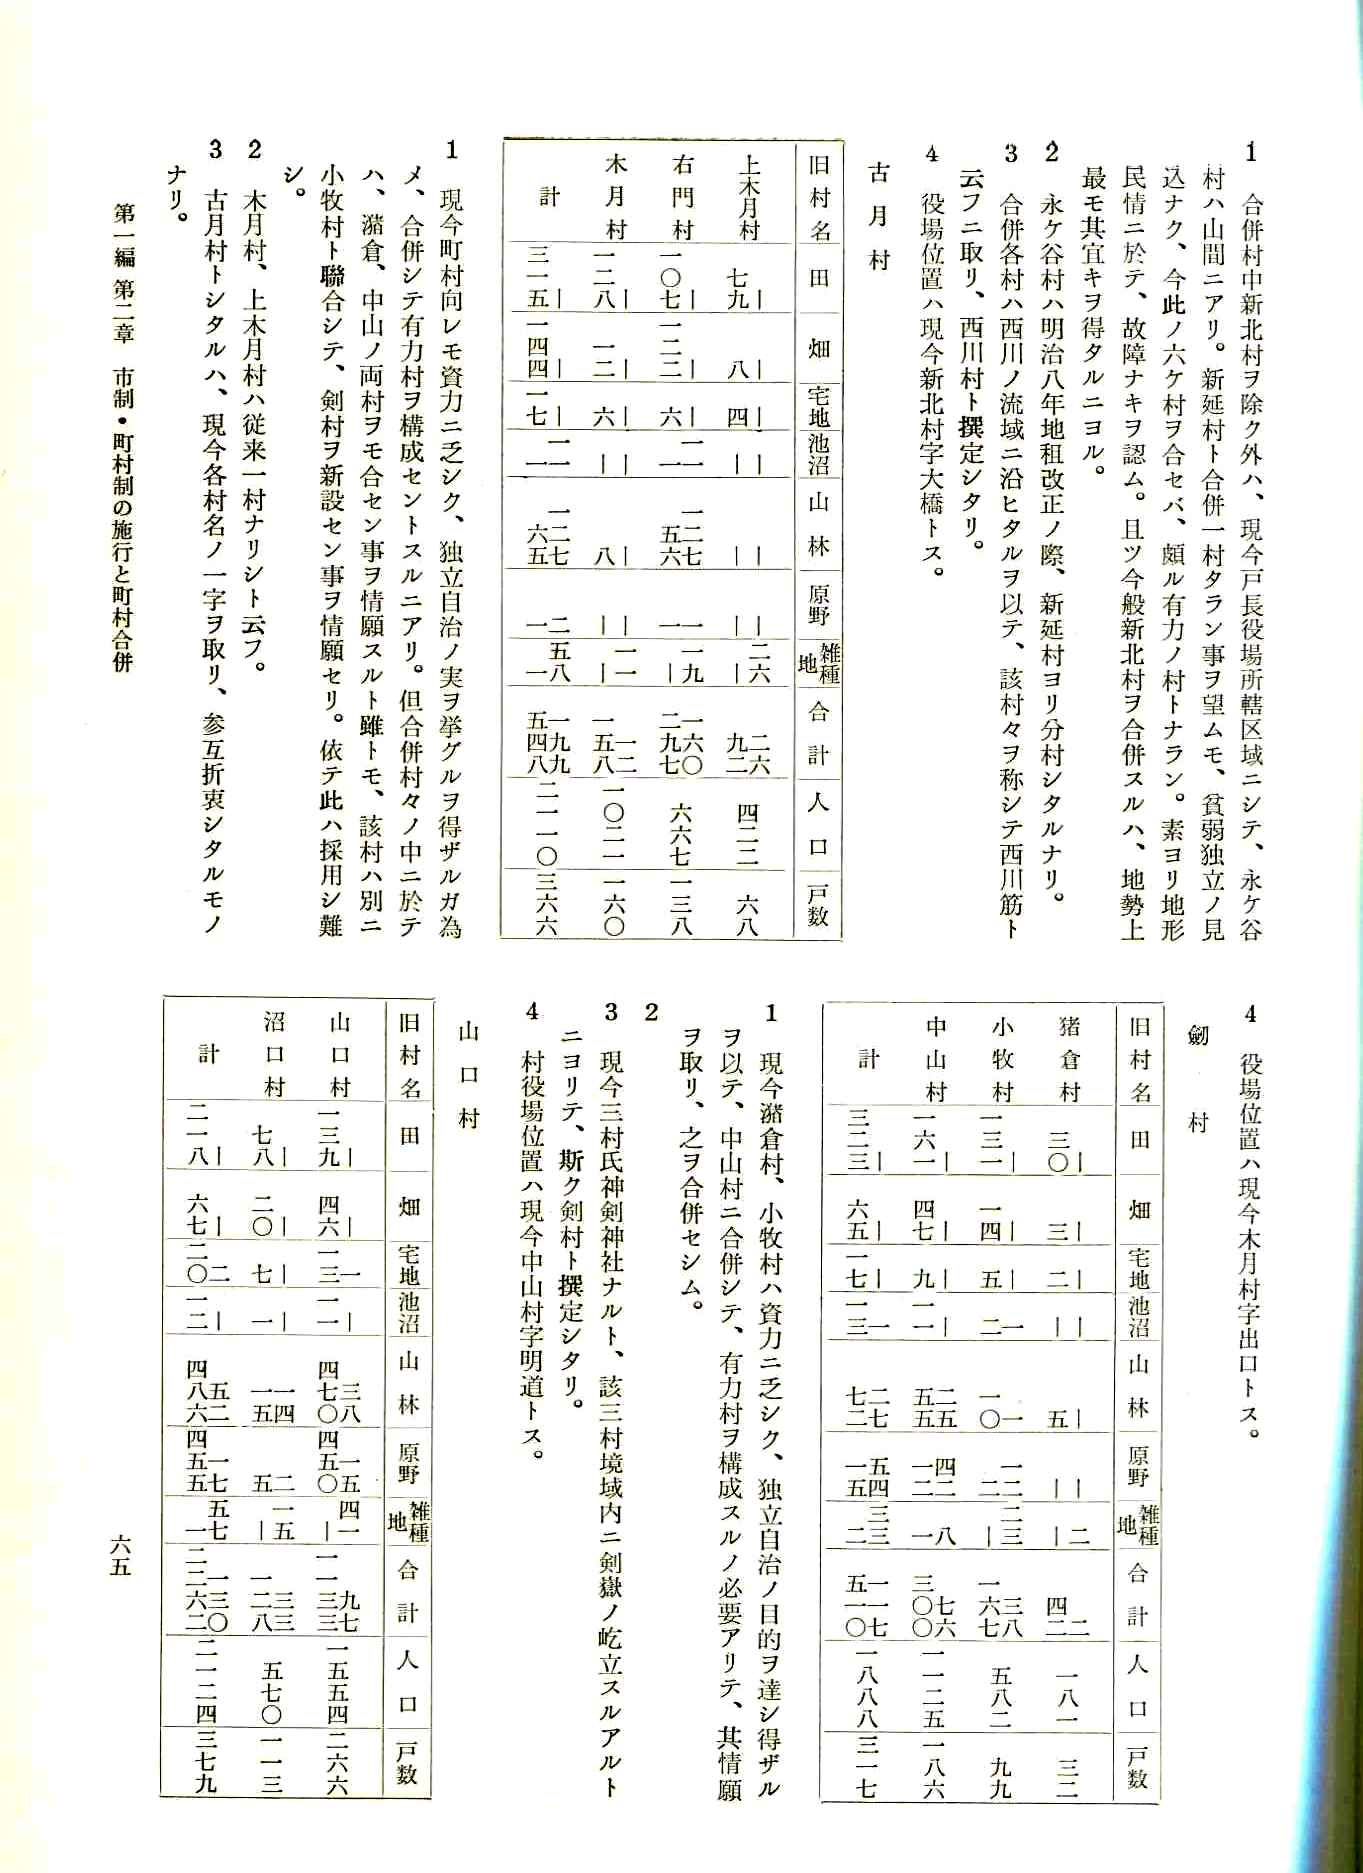 1　合併村中新北村ヲ除ク外ハ、現今戸長役場所轄区域ニシテ、永ケ谷
村ハ山間ニアリ。新延村ト合併一村タラン事ヲ望ムモ、貧弱独立ノ見
込ナク、今此ノ六ケ村ヲ合セバ、頗ル有力ノ村トナラン。素ヨリ地形
民情ニ於テ、故障ナキヲ認ム。且ツ今般新北村ヲ合併スルハ、地勢上
最モ其宜キヲ得タルニヨル。
2　永ケ谷村ハ明治八年地租改正ノ際、新延村ヨリ分村シタルナリ。
3　合併各村ハ西川ノ流域ニ沿ヒタルヲ以テ、該村々ヲ称シテ西川筋ト
云フニ取リ、西川村ト撰定シタリ。
4　役場位置ハ現今新北村字大橋トス。
古月村
旧村名　田　畑　宅地　池沼　山林　原野　雑種地　合計　人口　戸数
上木月村　｜ 七九　｜ 八　｜ 四　｜ ｜　｜ ｜　｜ ｜　二六 ｜　二六 九二　四二二　六八
右門村　｜ 一〇七　｜ 一二二　｜ 六　一一 一　二七 一五六　一 一　一九 ｜　一六〇 二九七　六六七　一三八
木月村　｜ 一二八　｜ 一二　｜ 六　｜ ｜　｜ 八　｜ ｜　一一 ｜　一二 一五八　一〇二一　一六〇
計　｜ 三一五　｜ 一四四　｜ 一七　一一 一　二七 一六五　二 一　五八 一　一九九 五四八　二一一〇　三六六
1　現今町村向レモ資力ニ乏シク、独立自治ノ実ヲ挙グルヲ得ザルガ為
メ、合併シテ有力村ヲ構成セントスルニアリ。但合併村々ノ中ニ於テ
ハ、瀦倉、中山ノ両村ヲモ合セン事ヲ情願スルト雖トモ、該村ハ別ニ
小牧村ト聯合シテ、剣村ヲ新設セン事ヲ情願セリ。依テ此ハ採用シ難
シ。
2　木月村、上木月村ハ従来一村ナリシト云フ。
3　古月村トシタルハ、現今各村名ノ一字ヲ取リ、参互折衷シタルモノ
ナリ。
4　役場位置ハ現今木月村字出口トス。
劒村
旧村名　田　畑　宅地　池沼　山林　原野　雑種地　合計　人口　戸数
猪倉村　｜ 三〇　｜ 三　｜ 二　｜ ｜　｜ 五　｜ ｜　二 ｜　二 四二　一八一　三二
小牧村　｜ 一三一　｜ 一四　｜ 五　一 二　一 一〇　一二 二　二三 ｜　三八 一六七　五八二　九九
中山村　｜ 一六一　｜ 四七　｜ 九　｜ 一一　二五 五五　四二 一二　八 一　七六 三〇〇　一一二五　一八六
計　｜ 三二三　｜ 六五　｜ 一七　一 一三　二七 七二　五四 一五　三三 二　一一七 五一〇　一八八八　三一七
1　現今瀦倉村、小牧村ハ資力ニ乏シク、独立自治ノ目的ヲ達シ得ザル
ヲ以テ、中山村ニ合併シテ、有力村ヲ構成スルノ必要アリテ、其情願
ヲ取リ、之ヲ合併セシム。
2
3　現今三村氏神剣神社ナルト、該三村境域内ニ剣嶽ノ屹立スルアルト
ニヨリテ、斯ク剣村ト撰定シタリ。
4　村役場位置ハ現今中山村字明道トス。
山口村
旧村名　田　畑　宅地　池沼　山林　原野　雑種地　合計　人口　戸数
山口村　｜ 一三九　｜ 四六　一 一三　｜ 一一　三八 四七〇　一五 四五〇　四一 ｜　九七 一一三三　一五五四　二六六
沼口村　｜ 七八　｜ 二〇　｜ 七　｜ 一　一四 一五　二 五　一五 ｜　三三 一二八　五七〇　一一三
計　｜ 二一八　｜ 六七　二 二〇　｜ 一二　五二 四八六　一七 四五五　五七 一　一三〇 一二六二　二一二四　三七九
第一編 第二章　市制・町村制の施行と町村合併
六五